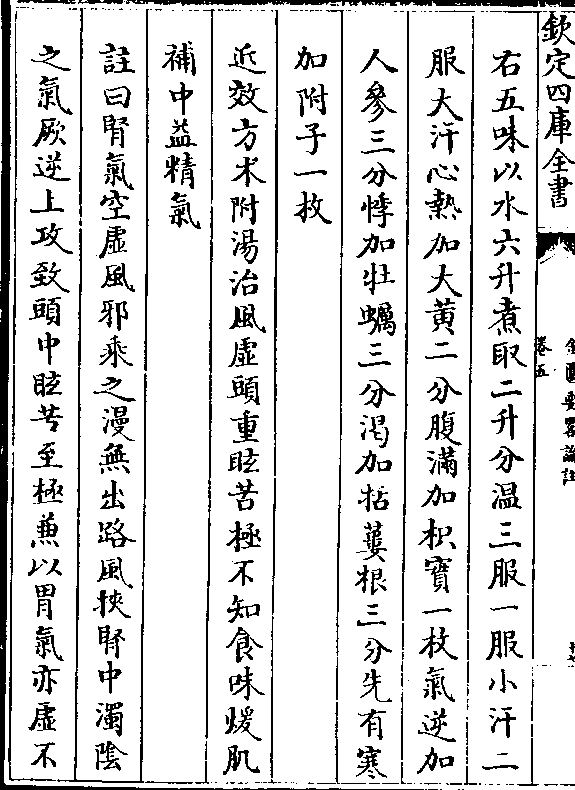 欽定四庫全書
金匱要略論註
卷五
右五味以水六升煮取二升分溫三服一服小汗二
服大汗心熱加大黃二分腹滿加枳實一枚氣逆加
人參三分悸加牡蠣三分渴加括蔞根三分先有寒
加附子一枚
近效方术附湯治風虛頭重眩苦極不知食味煖肌
補中益精氣
註曰腎氣空虛風邪乘之漫無出路風挾腎中濁陰
之氣厥逆上攻致頭中眩苦至極兼以胃氣亦虛不